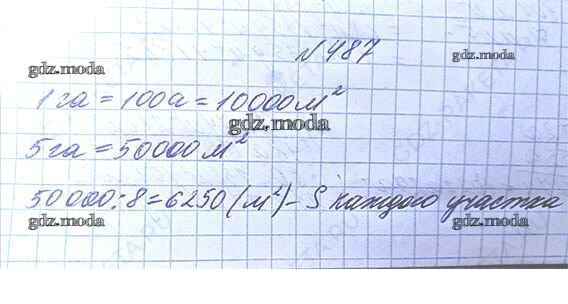 №487
gdz.moda gdz.moda
1 га = 100а = 10000м²
gdz.moda
5га = 50000м²
50000:8=6250(м²)- S каждого участка
gdz.moda gdz.moda